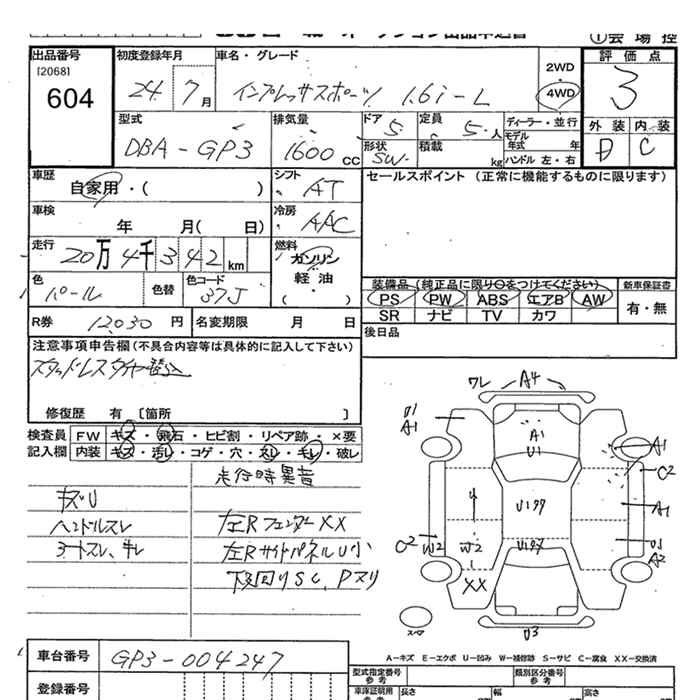 ①会場控
出品番号 初度登録年月 車名・グレード 2WD・4WD 評価点
[2068]
604 24 7月 インプレッサスポーツ 1.6i-L 3
型式 排気量 ドア 定員 ディーラー・並行 外装 内装
DBA-GP3 1600cc 5 5人 モデル年式 年 D C
形状 SW 積載 kg ハンドル 左・右
車歴 自家用・( ) シフト AT セールスポイント (正常に機能するものに限ります)
車検 年 月( 日) 冷房 AAC
走行 20万4千342km 燃料 ガソリン・軽油・( )
色 パール 色替 色コード 37J
装備品 (純正品に限り○をつけてください) 新車保証書
PS PW ABS エアB AW 有・無
SR ナビ TV カワ
R券 12030円 名変期限 月 日 後日品
注意事項申告欄 (不具合内容等は具体的に記入して下さい)
スタッドレスタイヤ積込
修復歴 有 [箇所 ]
検査員 FW キズ・飛石・ヒビ割・リペア跡・×要
記入欄 内装 キズ・汚レ・コゲ・穴・スレ・キレ・破レ
走行時異音
キズU
ハンドルスレ 左RフェンダーXX
シートスレ、キレ 左RサイドパネルU小
下廻りSC、Pスリ
ワレ A4
U1
A1 A1 U1 A1
C2
U177 A1
C2 W2 W2 U177 U1 A2
XX
スペア U3
A-キズ E-エクボ U-凹み W-補修跡 S-サビ C-腐食 XX-交換済
車台番号 GP3-004247
登録番号
型式指定番号 参考 類別区分番号 参考
車庫証明用 参考 長さ 幅 高さ